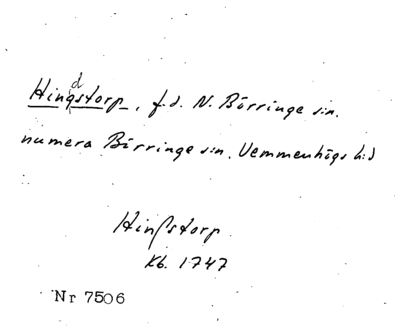 Hingdstorp, f.d. N. Börringe s:n.
numera Börringe s:n, Vemmenhögs h:d
Hingstorp
Kb. 1747
Nr 7506